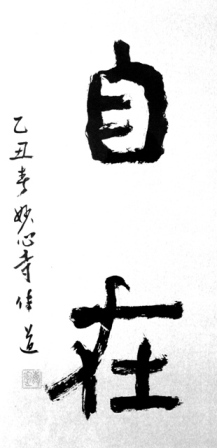 自在
乙丑春妙心寺住道